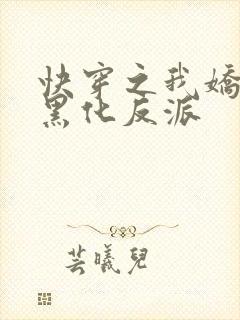 快穿之我嬌
黑化反派
芸曦兒